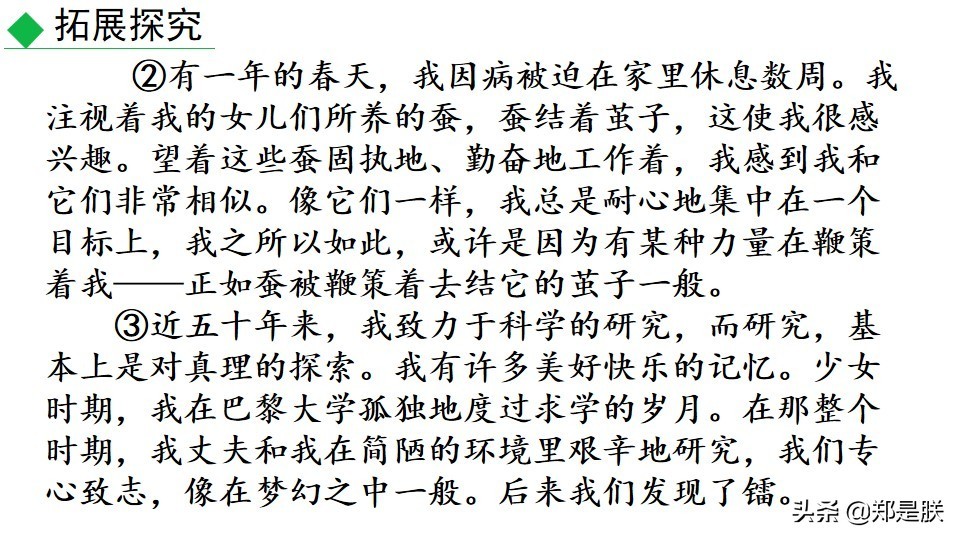 拓展探究
②有一年的春天，我因病被迫在家里休息数周。我
注视着我的女儿们所养的蚕，蚕结着茧子，这使我很感
兴趣。望着这些蚕固执地、勤奋地工作着，我感到我和
它们非常相似。像它们一样，我总是耐心地集中在一个
目标上，我之所以如此，或许是因为有某种力量在鞭策
着我——正如蚕被鞭策着去结它的茧子一般。
③近五十年来，我致力于科学的研究，而研究，基
本上是对真理的探索。我有许多美好快乐的记忆。少女
时期，我在巴黎大学孤独地度过求学的岁月。在那整个
时期，我丈夫和我在简陋的环境里艰辛地研究，我们专
心致志，像在梦幻之中一般。后来我们发现了镭。
头条 @郑是朕